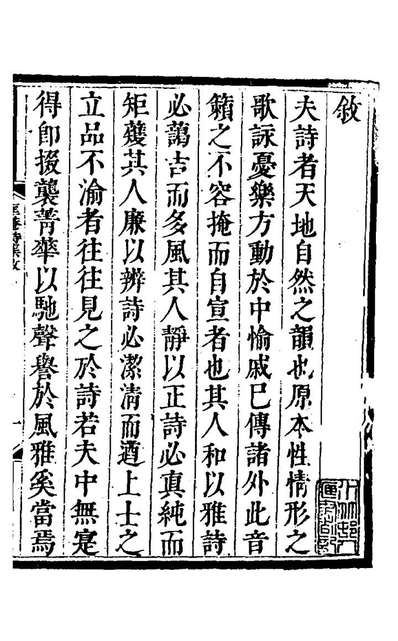 敘
夫詩者天地自然之韻也原本性情形之
歌詠憂樂方動於中愉戚已傳諸外此音
籟之不容掩而自宣者也其人和以雅詩
必藹吉而多風其人靜以正詩必真純而
矩蠖其人廉以辨詩必潔清而遒上士之
立品不渝者往往見之於詩若夫中無寔
得卽掇襲菁華以馳聲譽於風雅奚當焉